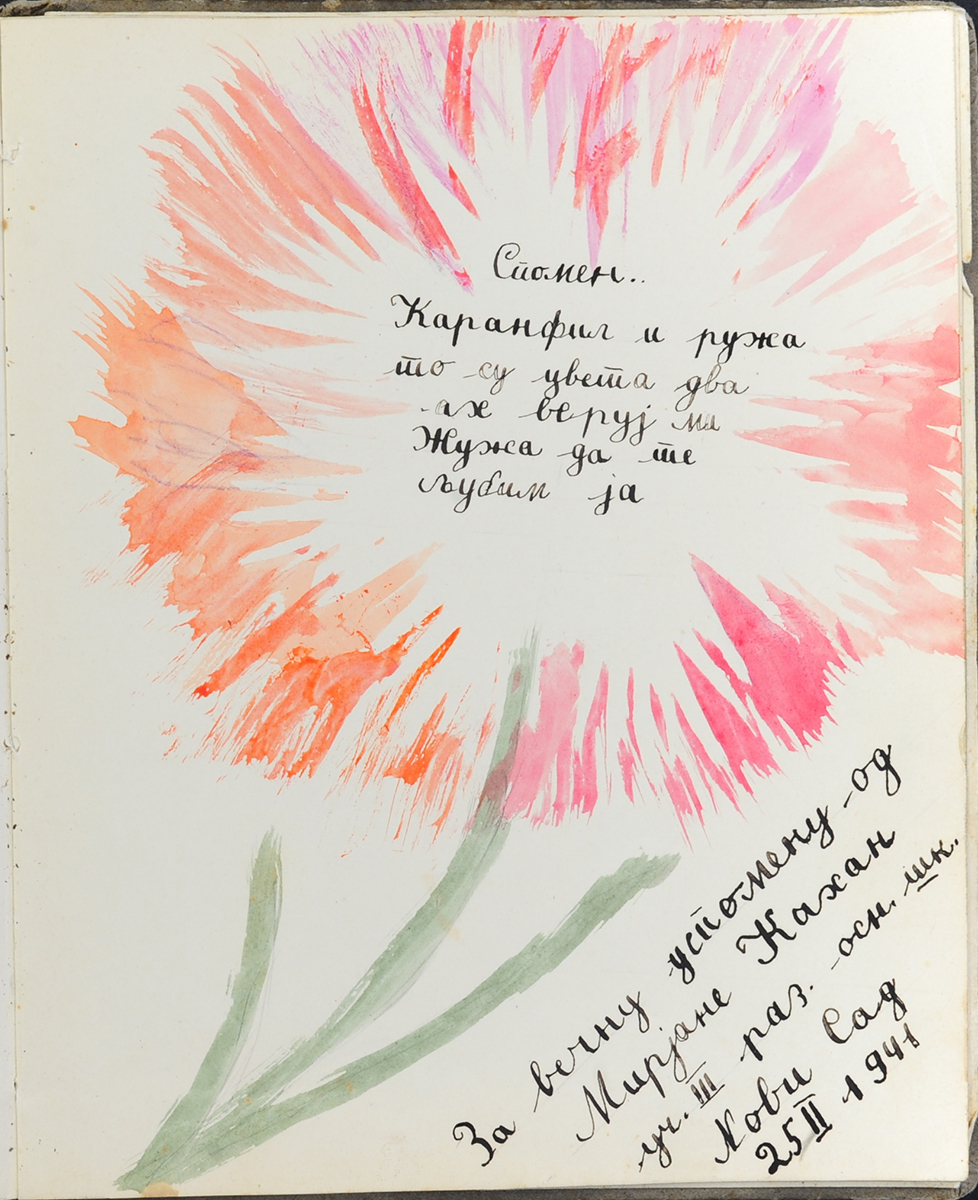 Спомен..
Каранфил и ружа
то су цвета два
ах веруј ми
Жужа да те
љубим ја
За вечну успомену од
Мирјане Кахан
уч. III раз. осн. шк.
Нови Сад
25 II 1941